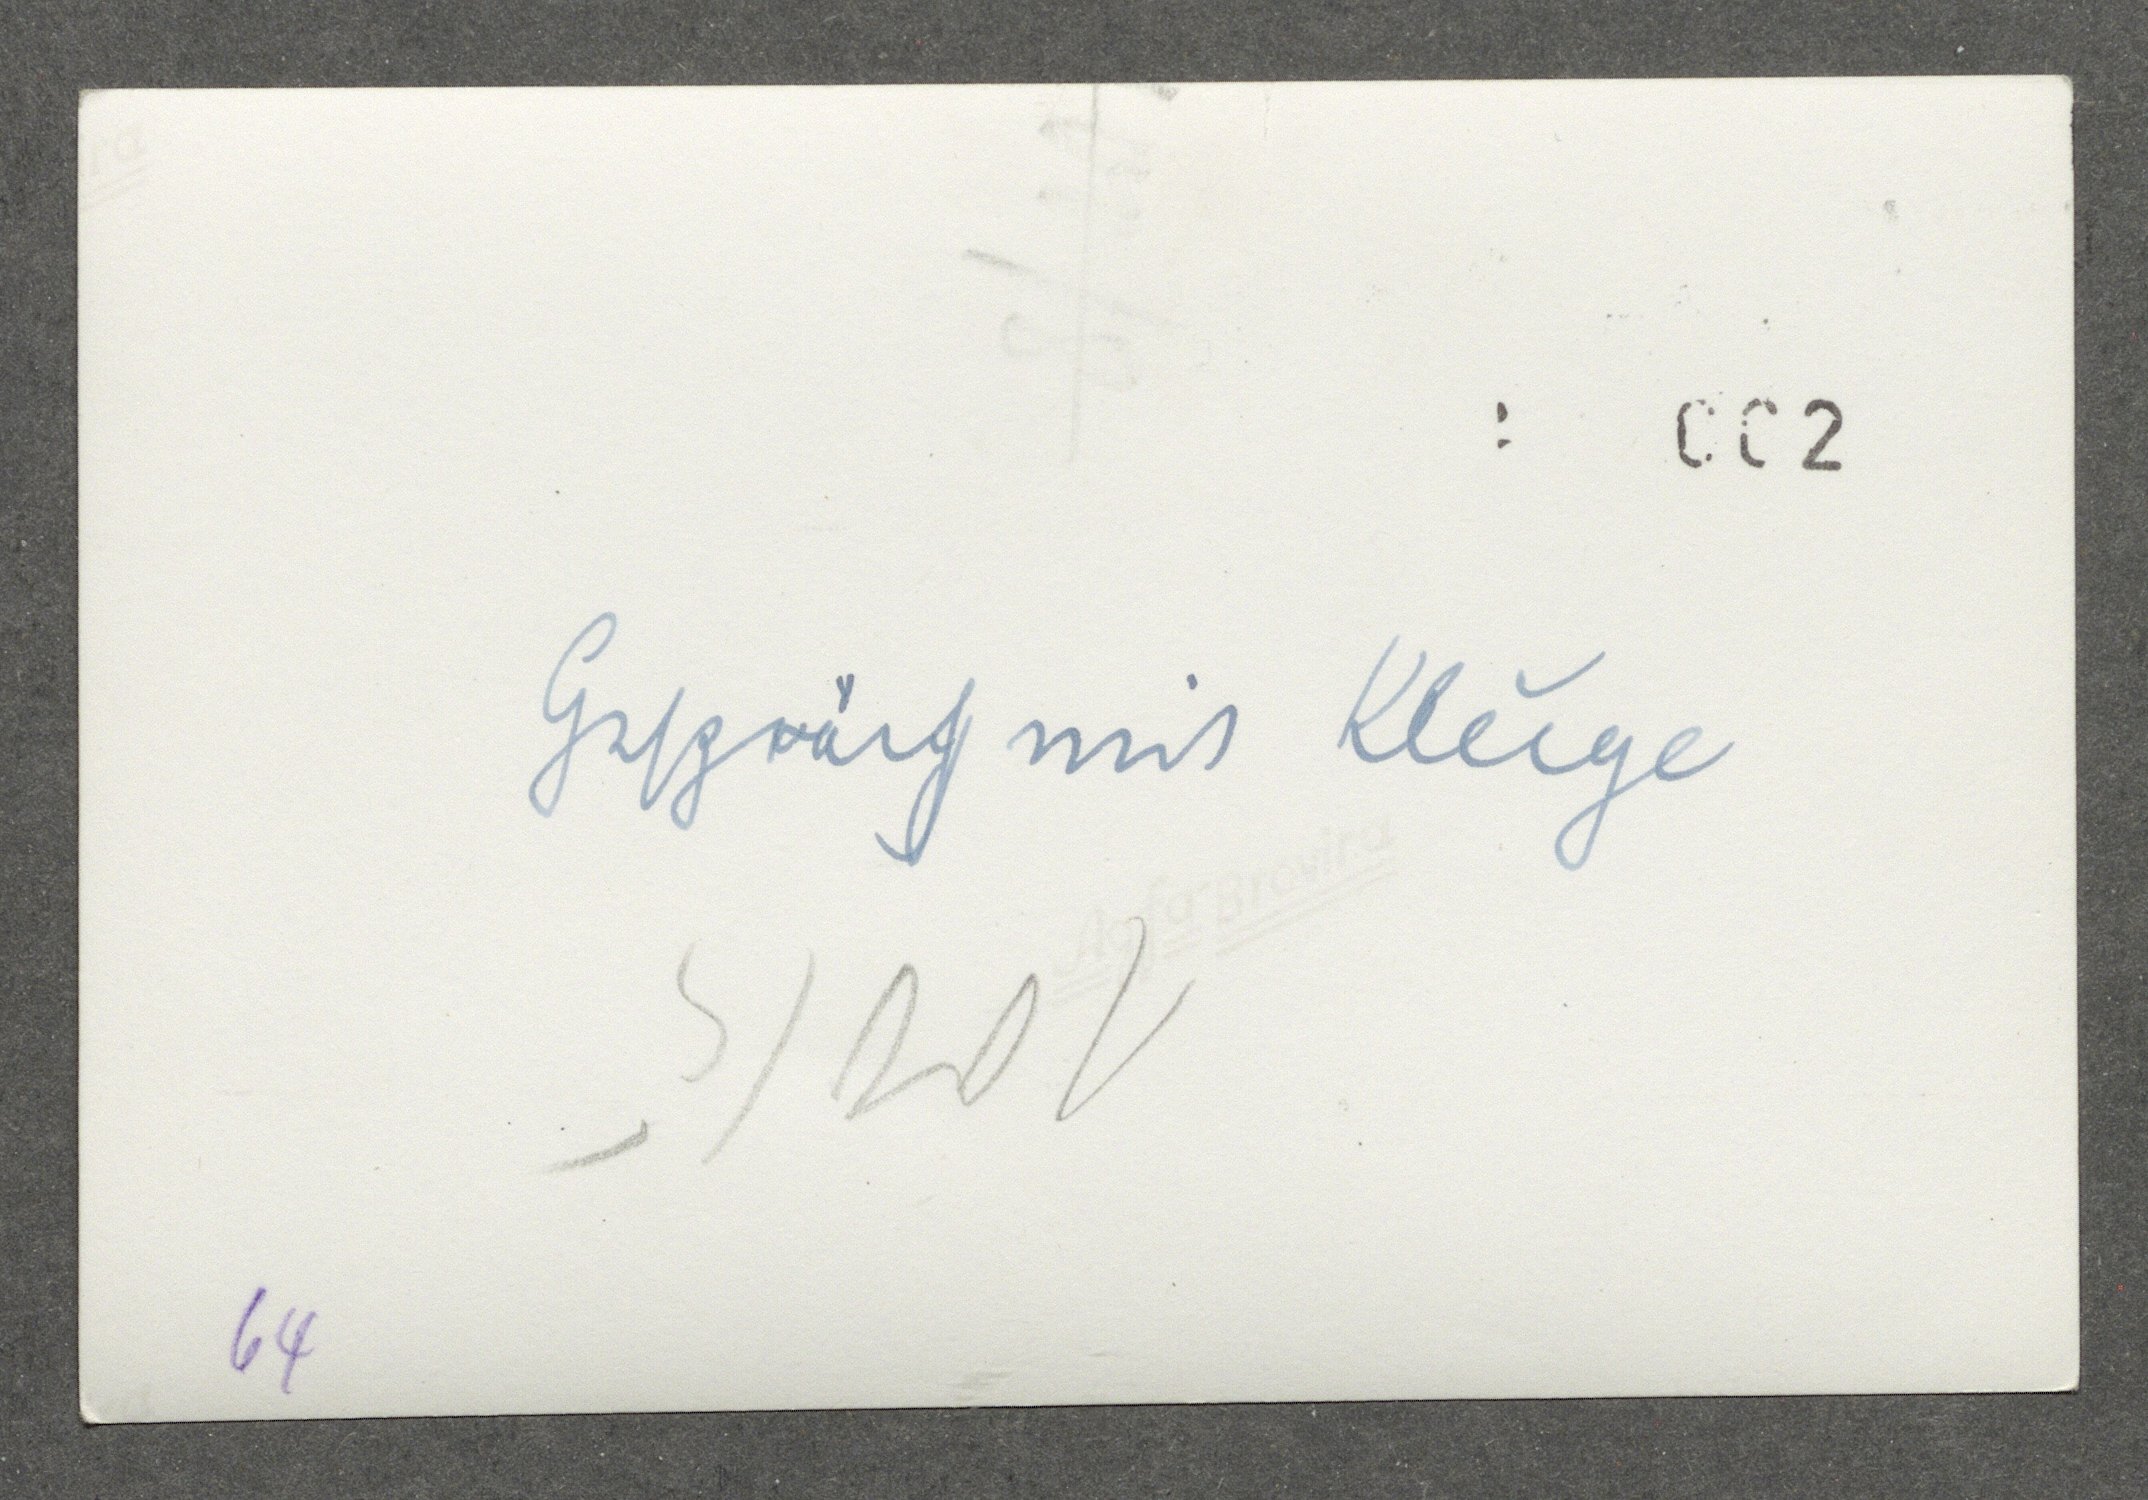 : 002
Gespräch mit Kluge
Agfa Brovira
64